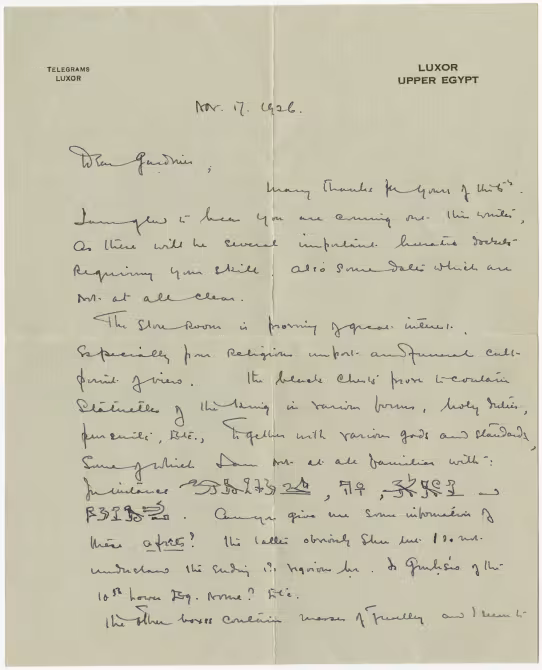 TELEGRAMS
LUXOR
LUXOR
UPPER EGYPT
Nov. 17. 1926.
Dear Gardiner,
Many thanks for yours of the
I am glad to hear you are coming out this winter,
as there will be several important hieratic dockets
requiring your skill. Also some dates which are
not at all clear.
The Store Room is proving of great interest,
especially from religious import and funeral cult
point of view. The black chests prove to contain
statuettes of the king in various forms, holy deities,
Etc., together with various gods and standards,
some of which I am not at all familiar with:
for instance
Can you give me some information of
these? The latter obviously Shu but I do not
understand the ending
10th Lower Eg. nome? Etc.
The other boxes contain masses of and I seem to